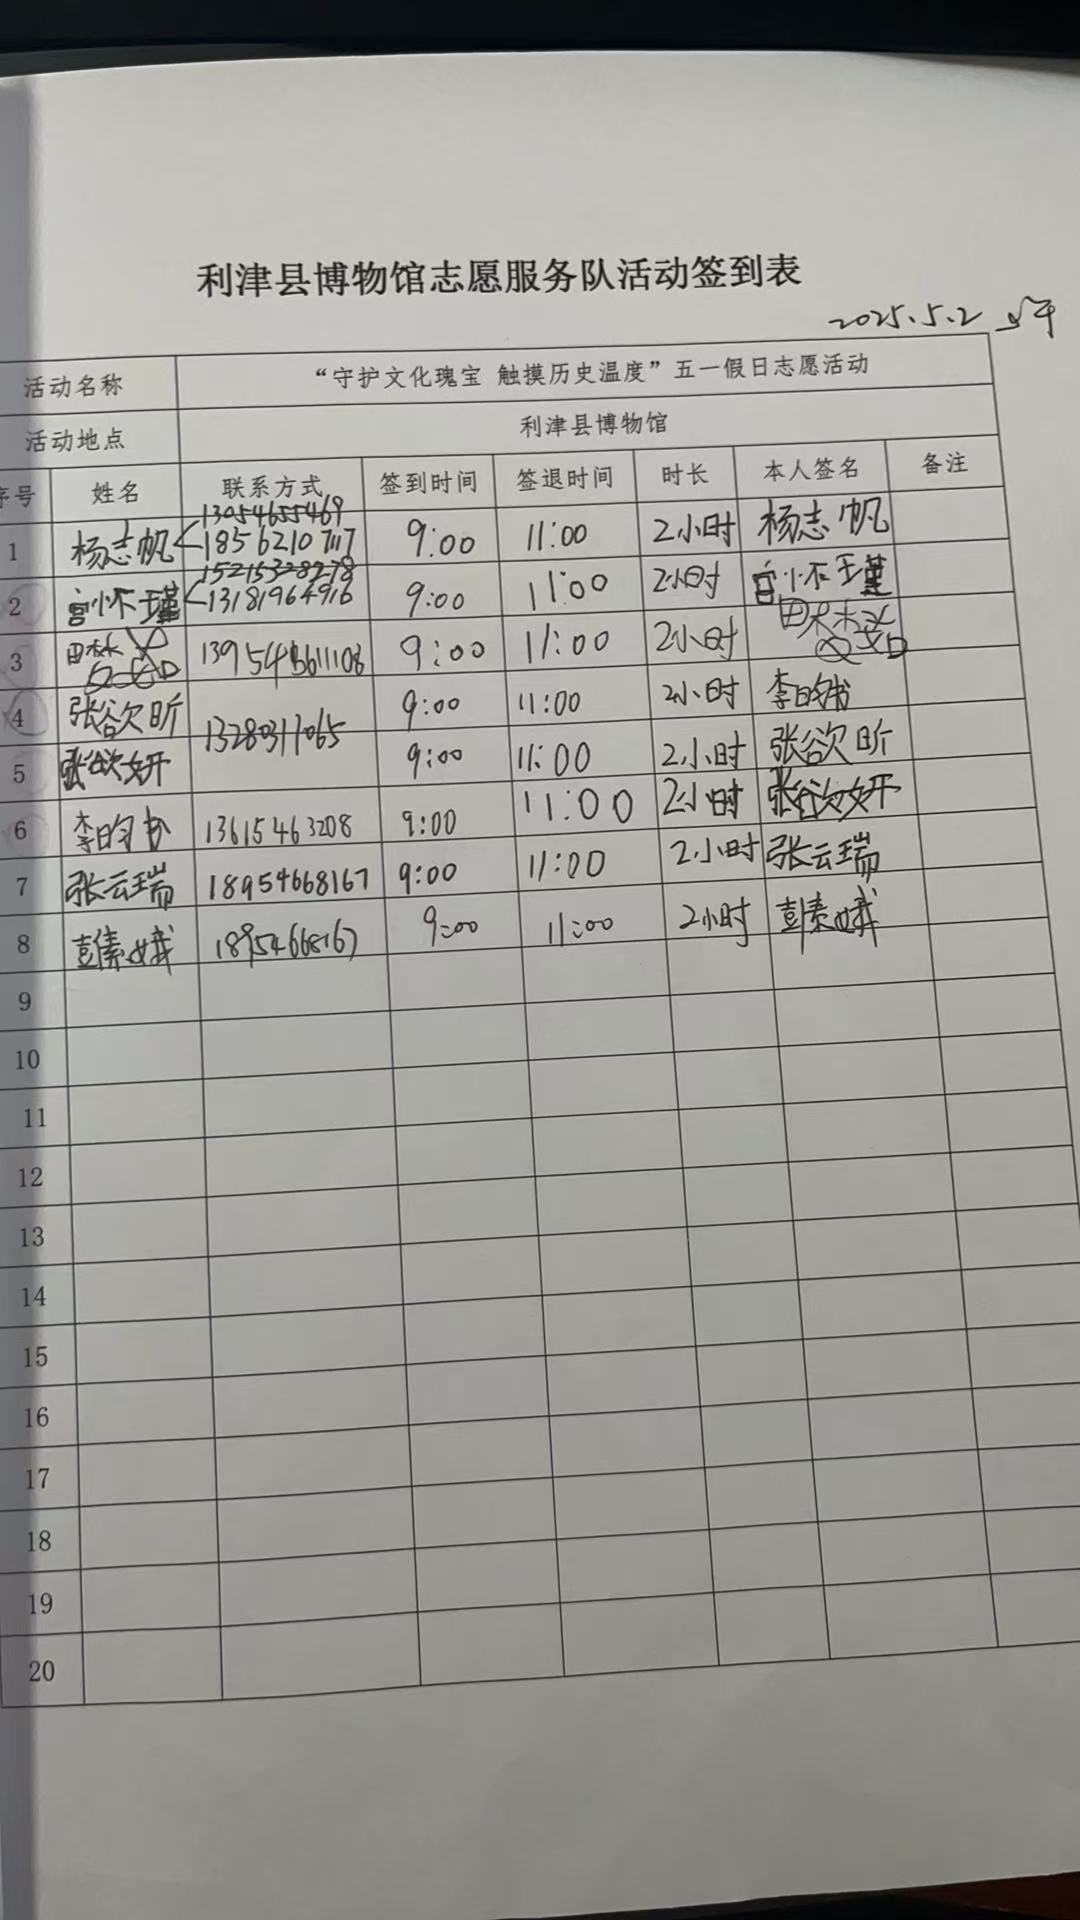 利津县博物馆志愿服务队活动签到表
2025.5.2 上午
活动名称 “守护文化瑰宝 触摸历史温度”五一假日志愿活动
活动地点 利津县博物馆
序号 姓名 联系方式 签到时间 签退时间 时长 本人签名 备注
13054655469
1 杨志帆 18562107117 9:00 11:00 2小时 杨志帆
15215328278
2 宫怀瑾 13181964916 9:00 11:00 2小时 宫怀瑾
3 9:00 11:00 2小时
4 张欲昕 13280311065 9:00 11:00 2小时 李昀书
5 张欲妍 9:00 11:00 2小时 张欲昕
6 李昀书 13615463208 9:00 11:00 2小时 张欲妍
7 张云瑞 18954668167 9:00 11:00 2小时 张云瑞
8 彭素娥 18954668167 9:00 11:00 2小时 彭素娥
9
10
11
12
13
14
15
16
17
18
19
20